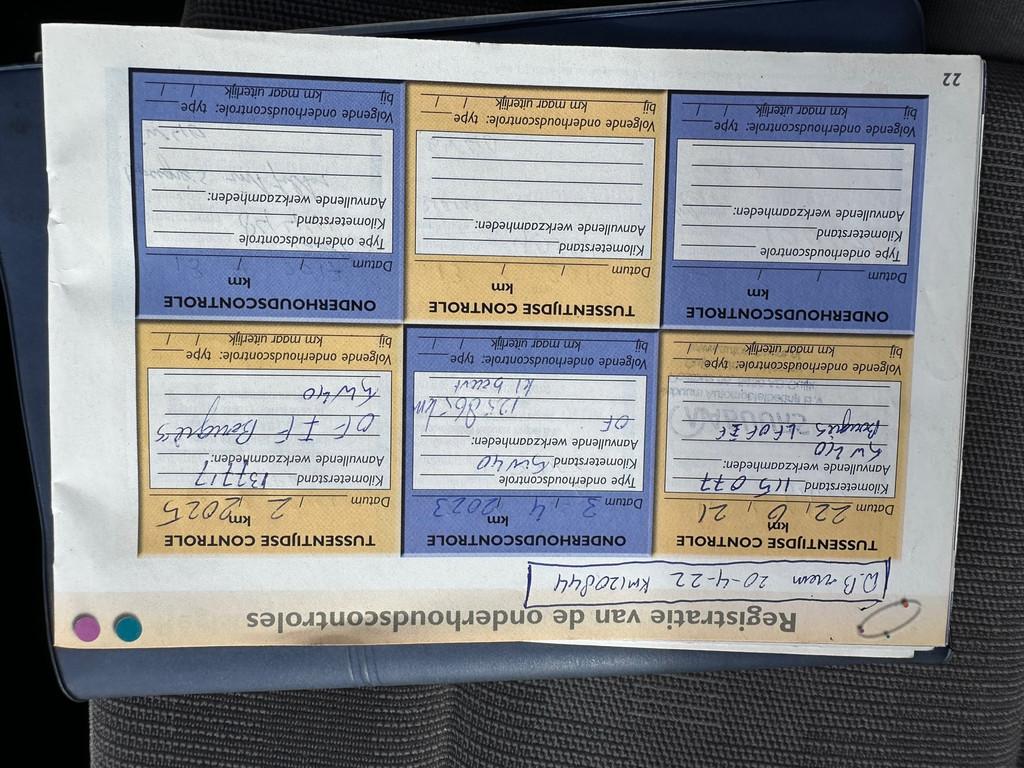 Registratie van de onderhoudscontroles
D.B riem 20-4-22 km 120844
TUSSENTIJDSE CONTROLE
km
Datum 22 / 6 / 21
Kilometerstand 115 077
Aanvullende werkzaamheden:
5W40
Bougies LF OF IF
Volgende onderhoudscontrole: type
bij km maar uiterlijk / /
ONDERHOUDSCONTROLE
km
Datum 3 / 4 / 2023
Type onderhoudscontrole
Kilometerstand 5W40
Aanvullende werkzaamheden:
OF
125865 km
kl beurt
Volgende onderhoudscontrole: type
bij km maar uiterlijk / /
TUSSENTIJDSE CONTROLE
km
Datum / 2 / 2025
Kilometerstand 137717
Aanvullende werkzaamheden:
OF IF Bougies
5W40
Volgende onderhoudscontrole: type
bij km maar uiterlijk / /
ONDERHOUDSCONTROLE
km
Datum / /
Type onderhoudscontrole
Kilometerstand
Aanvullende werkzaamheden:
Volgende onderhoudscontrole: type
bij km maar uiterlijk / /
TUSSENTIJDSE CONTROLE
km
Datum / /
Kilometerstand
Aanvullende werkzaamheden:
Volgende onderhoudscontrole: type
bij km maar uiterlijk / /
ONDERHOUDSCONTROLE
km
Datum / /
Type onderhoudscontrole
Kilometerstand
Aanvullende werkzaamheden:
Volgende onderhoudscontrole: type
bij km maar uiterlijk / /
22